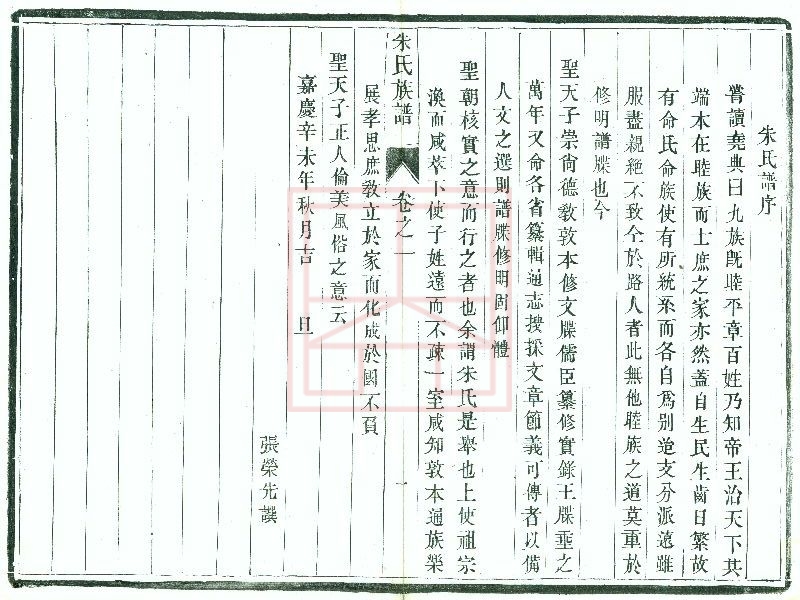 朱氏譜序
嘗讀堯典曰九族旣睦平章百姓乃知帝王治天下其
端本在睦族而士庶之家亦然蓋自生民生齒日繁故
有命氏命族使有所統系而各自爲別迨支分派遠雖
服盡親絶不致仝於路人者此無他睦族之道莫重於
修明譜牒也今
聖天子崇尙德敎敦本修文牒儒臣纂修實錄玉牒垂之
萬年又命各省纂輯通志搜採文章節義可傳者以備
人文之選則譜牒修明固仰體
聖朝核實之意而行之者也余謂朱氏是舉也上使祖宗
渙而咸萃下使子姓遠而不疎一室咸知敦本通族樂
朱氏族譜 卷之一 一
展孝思庶敎立於家而化成於國不負
聖天子正人倫美風俗之意云
嘉慶辛未年秋月吉 旦
張榮先譔